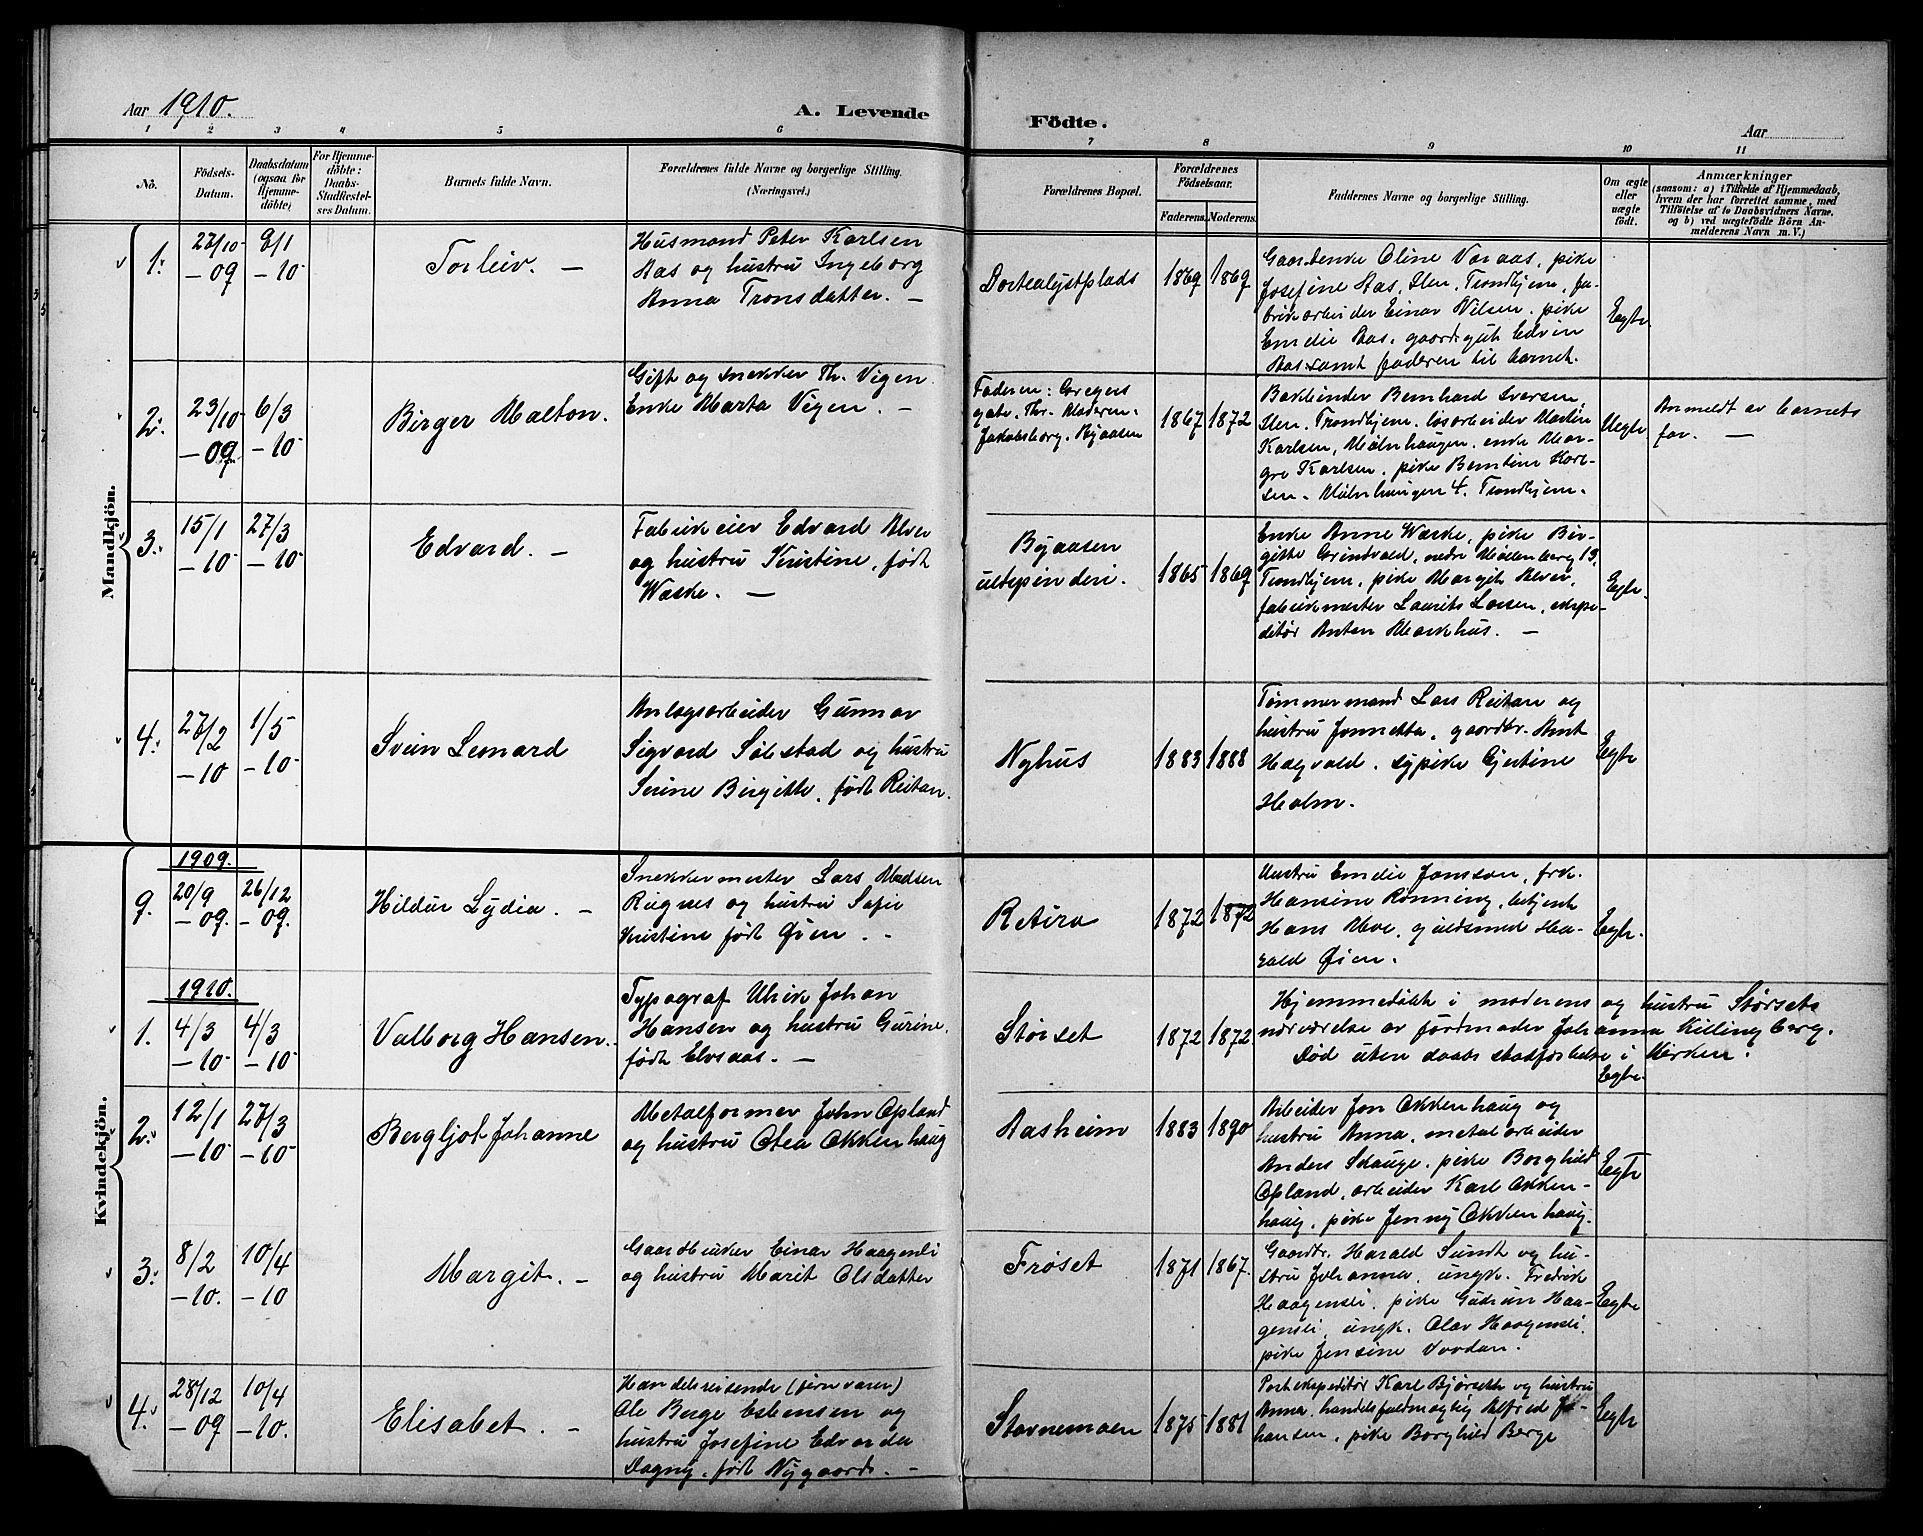 Aar 1910.
A. Levende
Födte.
Aar
1 2 3 4 5 6 7 8 9 10 11
No.
Födsels-
Datum.
Daabsdatum
(ogsaa for
Hjemme-
döbte)
For Hjemme-
döbte:
Daabs-
Stadfæstel-
ses Datum.
Barnets fulde Navn.
Forældrenes fulde Navne og borgerlige Stilling.
(Næringsvei.)
Forældrenes Bopæl.
Forældrenes
Födselsaar.
Faderens. Moderens.
Faddernes Navne og borgerlige Stilling.
Om ægte
eller
uægte
födt.
Anmærkninger
(saasom: a) i Tilfælde af Hjemmedaab,
hvem der har forrettet samme, med
Tilföielse af to Daabsvidners Navne,
og b) ved uægtefödte Börn An-
melderens Navn m. V.)
Mandkjön.
1.
27/10
-09
9/1
-10
Torleiv. -
Husmand Peter Karlsen
Aas og hustru Ingeborg
Anna Tronsdatter. -
Dortealystplads
1869 1869
Gaardenke Oline Varaas, pike
Josefine Aas, Ilen, Trondhjem, fa-
brikarbeider Einar Nilsen, pike
Emelie Aas, gaardsgut Edvin
Aas samt faderen til barnet.
Egte
2.
23/10
-09
6/3
-10
Birger Malton.
Gift og snekker Th. Vigen
Enke Marta Vigen. -
Faderen: Gregers
gate, Thr. Moderen:
Jakobsborg, Byaasen
1867 1872
Bokbinder Bernhard Iversen,
Ilen, Trondhjem, løsarbeider Martin
Karlsen, Mølnhaugen, enke Mar-
gre Karlsen, pike Berntine Karl-
sen, Mølnhaugen 4, Trondhjem.
Uegte
Anmeldt av barnets
far. -
3.
15/1
-10
27/3
-10
Edvard. -
Fabrikeier Edvard Alver
og hustru Kristine, født
Waske. -
Byaasen
uldspinderi.
1865 1869
Enke Anne Waske, pike Bir-
gitte Grindvald, nedre Møllenberg 13,
Trondhjem, pike Margit Alver,
fabrikmester Laurits Larsen, ekspe-
ditør Anton Markhus. -
Egte.
4.
27/2
-10
1/5
-10
Svein Leonard
Anlægsarbeider Gunnar
Sigvard Solstad og hustru
Serine Birgitte, født Reitan.
Nyhus
1883 1888
Tømmermand Lars Reitan og
hustru Jonnetta, gaardbr. Arnt
Hagvald, sypike Gjertine
Holm.
Egte
Kvindekjön.
1909.
9.
20/9
-09.
26/12
-09.
Hildur Lydia. -
Snekkermester Lars Madsen
Rugnes og hustru Sofie
Kristine født Øien. -
Retiro
1872 1872
Hustru Emelie Jonson, frk.
Hansine Rønning, betjent
Hans Moe, guldsmed Ha-
rald Øien.
Egte.
1910.
1.
4/3
-10
4/3
-10
Valborg Hansen.
Typograf Ulrik Johan
Hansen og hustru Gurine,
født Elvsaas. -
Størset
1872 1872.
Hjemmedøbt i moderens og hustru Størsets
nærværelse av jordmoder Johanna Killingberg.
Død uten daabs stadfæstelse i kirken.
Egte.
2.
12/1
-10
27/3
-10
Bergljot Johanne
Metalformer John Opland
og hustru Otea Okkenhaug
Aasheim
1883 1890
Arbeider Jon Okkenhaug og
hustru Anna, metalarbeider
Anders Skauge, pike Borghild
Opland, arbeider Karl Okken-
haug, pike Jenny Okkenhaug.
Egte
3.
8/2
-10.
10/4
-10
Margit. -
Gaardbruker Einar Haagensli
og hustru Marit Olsdatter
Frøset
1871 1867
Gaardbr. Harald Sundt og hu-
stru Johanna, ungk. Fredrik
Haagensli, pike Gudrun Haa-
gensli, ungk. Olav Haagensli,
pike Jensine Vordan.
Egte
4.
28/12
-09
10/4
-10.
Elisabet. -
Handelsreisende (jernvarer)
Ole Berge Esbensen og
hustru Josefine Edvarda
Dagny, født Nygaard. -
Stavnemoen
1875 1881
Postekspeditør Karl Bjørseth og hustru
Anna, handelsfuldmægtig Alfred Jo-
hansen, pike Borghild Berge
Egte